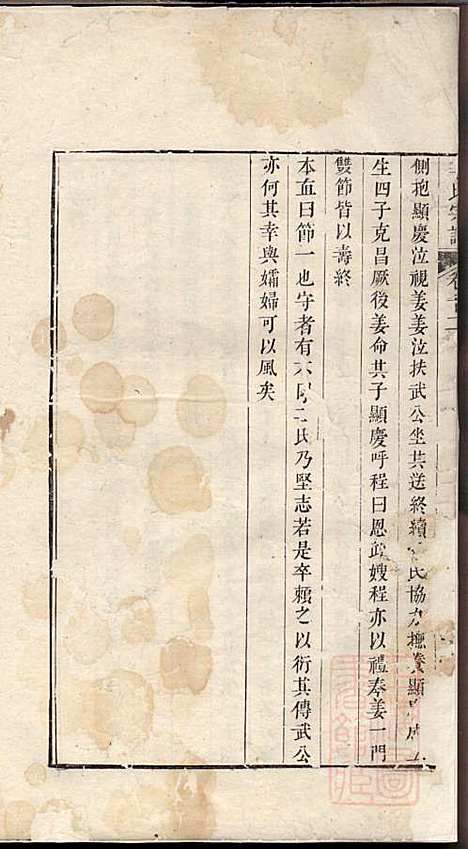 氏宗譜
側抱顯慶泣視姜姜泣扶武公坐共送終續 氏協力撫養顯 成
生四子克昌厥後姜命其子顯慶呼程曰恩 嫂程亦以禮奉姜一門
雙節皆以壽終
本直曰節一也守者有不同 氏乃堅志若是卒賴之以衍其傳武公
亦何其幸與孀婦可以風矣